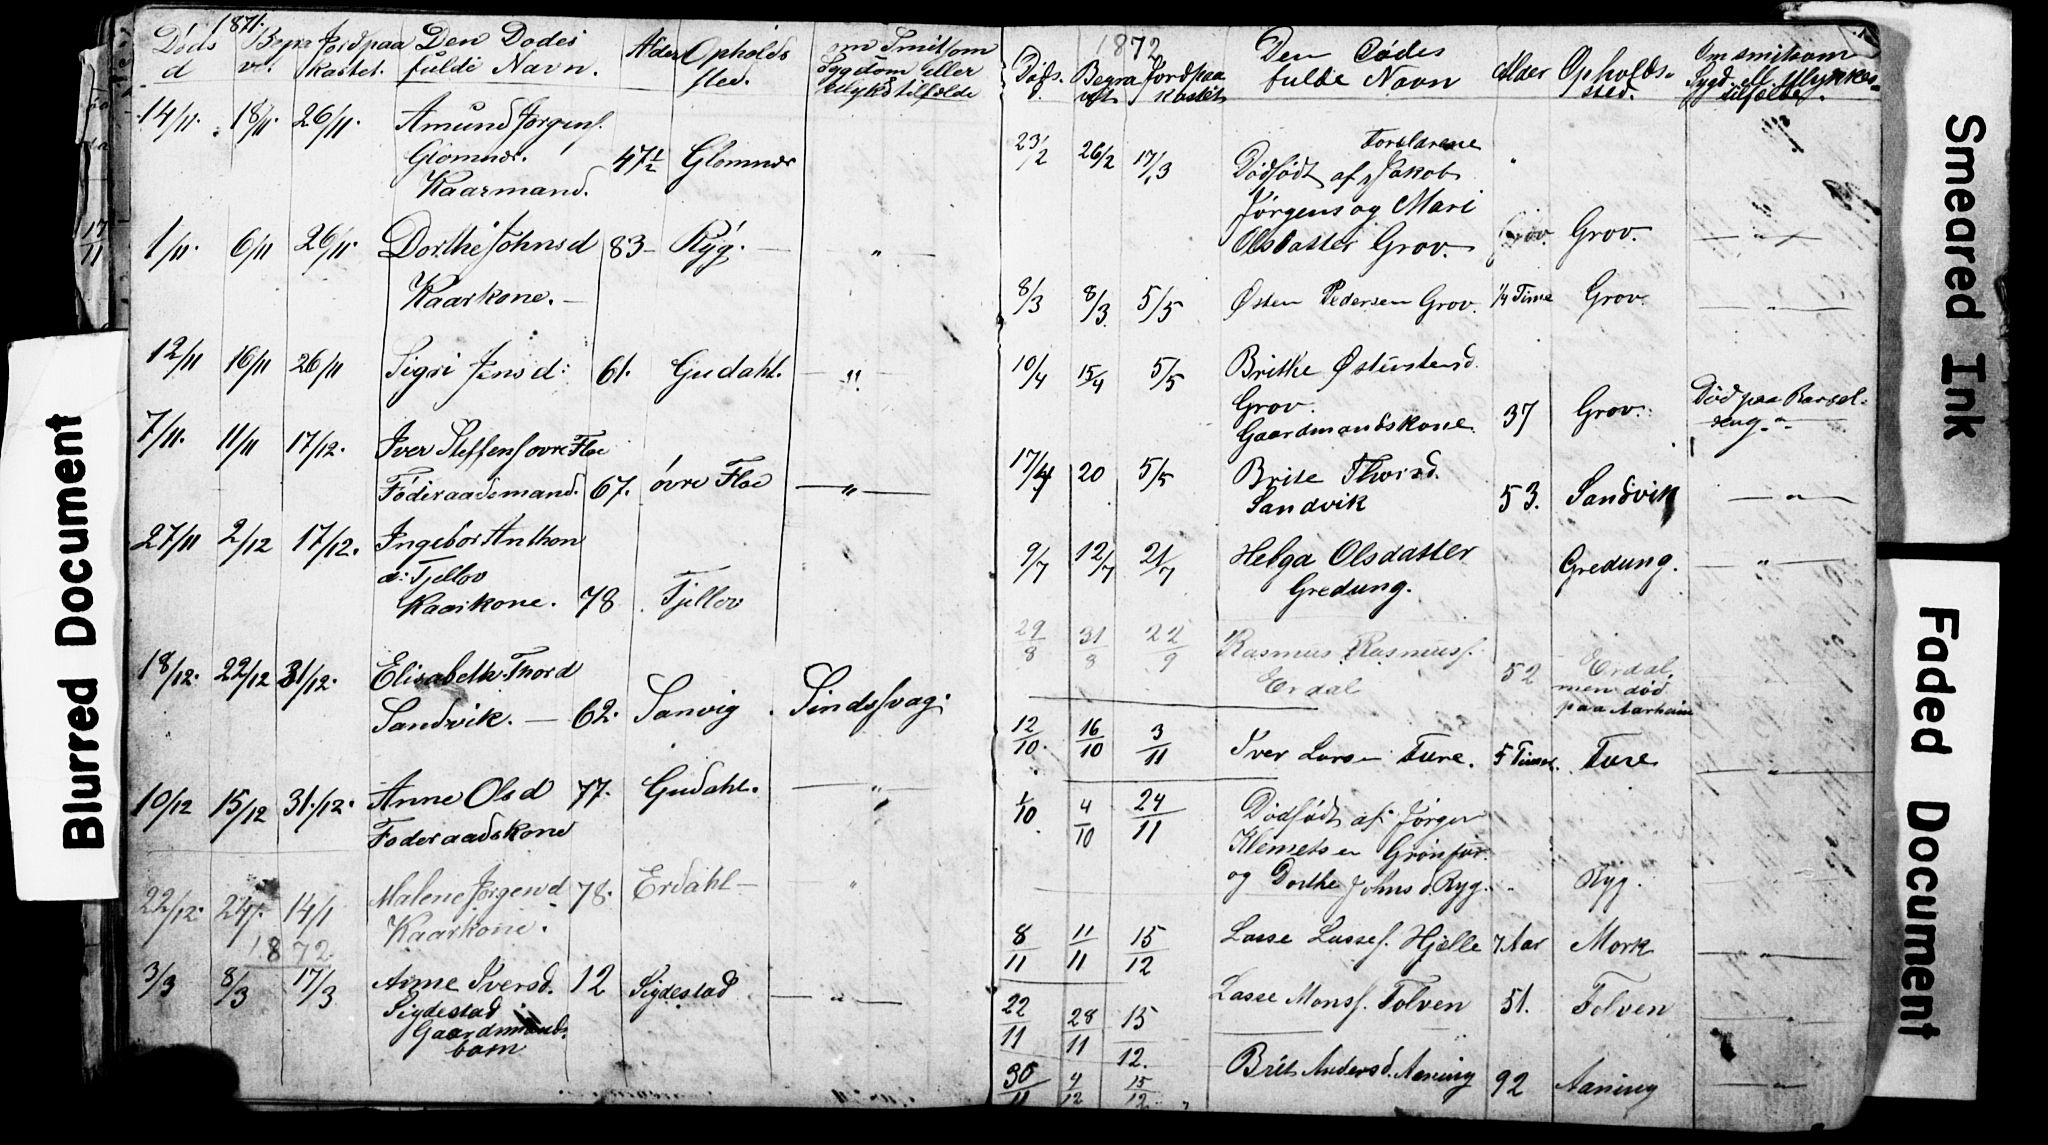 1871.
Døds
d
Begra
vet
Jordpaa
kastet.
Den Dødes
fulde Navn.
Alder
Opholds
sted.
om Smitsom
Sygdom eller
Ulykkstilfælde
14/11. 18/11. 26/11. Amund Jørgens.
Glomnes. 47½ Glomnes
Kaarmand.
17/11
1/11. 6/11 26/11. Dorthe Johnsd 83 - Ryg. - "
Kaarkone. -
12/11 16/11 26/11 Sigri Jensd: 61. Gudahl. - " -
7/11. 11/11 17/12. Iver Steffens. øvre Floe
Føderaadsmand. 67. øvre Floe - " -
27/11 2/12 17/12. Ingebor Anthon
d: Tjellov
Kaarkone. 78 Tjellov
18/12. 22/12 31/12. Elisabeth Thord
Sandvik. - 62. Sanvig Sindssvag.
10/12 15/12 31./12. Anne Olsd 77. Gudahl. - " -
Føderaadskone
22/12. 27/. 14/1 Malene Jørgensd 78. Erdahl - "
Kaarkone.
1872
3/3 8/3 17/3 Anne Iversd. 12 Sigdestad - " -
Sigdestad
Gaardmands
barn
1872
Døds. Begra
vet
Jordpaa
kastet
Den Dødes
fulde Navn
Alder
Opholds-
sted.
Om smitsom
Sygd. ell. Ulykkes-
tilfælde.
23/2 26/2 17/3 Forældrene
Dødfødt af Jakob "
Jørgens og Mari
Olsdatter Grov. Grov. - " -
8/3 8/3 5/5 Østen Pedersen Grov. ¼ Time Grov. - " -
10/4 15/4 5/5 Brithe Østenstensd.
Grov.
Gaardmandskone. 37 Grov. Død paa Barsel-
seng. "
17/4 20 5/5 Brite Thorsd.
Sandvik 53. Sandvik - " -
9/7 12/7 21/7 Helga Olsdatter Gredung. - " -
Gredung.
29/8 31/8 22/9 Rasmus Rasmuss.
Erdal 52 Erdal,
men død
paa Aarheim
12/10. 16/10 3/11 Iver Larsen Fure. 5 Timer. Fure - " -
1/10 4/10 24/11 Dødfødt af Jørgen
Klemetsen
og Dorthe Johnsd. Ryg. " Ryg.
8/11 11/11 15/12 Lasse Lasses. Hjelle 7 Aar Mork - " -
22/11 28/11 15/12. Lasse Monss. Tolven 51. Tolven - " -
30/11 4/12 15/12 Brit Andersd. Aaning 92 Aaning - " -
Blurred Document
Smeared Ink
Faded Document